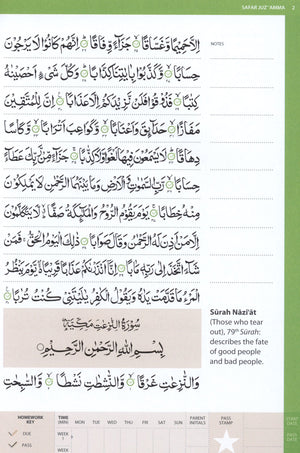 SAFAR JUZ' AMMA 2
NOTES
اِلَّا حَمِيْمًا وَّغَسَّاقًا ۝ جَزَآءً وِّفَاقًا ۝ اِنَّهُمْ كَانُوْا لَا يَرْجُوْنَ
حِسَابًا ۝ وَّكَذَّبُوْا بِاٰيٰتِنَا كِذَّابًا ۝ وَكُلَّ شَيْءٍ اَحْصَيْنٰهُ
كِتٰبًا ۝ فَذُوْقُوْا فَلَنْ نَّزِيْدَكُمْ اِلَّا عَذَابًا ۝ اِنَّ لِلْمُتَّقِيْنَ
مَفَازًا ۝ حَدَآئِقَ وَاَعْنَابًا ۝ وَّكَوَاعِبَ اَتْرَابًا ۝ وَّكَاْسًا
دِهَاقًا ۝ لَا يَسْمَعُوْنَ فِيْهَا لَغْوًا وَّلَا كِذّٰبًا ۝ جَزَآءً مِّنْ رَّبِّكَ عَطَآءً
حِسَابًا ۝ رَّبِّ السَّمٰوٰتِ وَالْاَرْضِ وَمَا بَيْنَهُمَا الرَّحْمٰنِ لَا يَمْلِكُوْنَ
مِنْهُ خِطَابًا ۝ يَوْمَ يَقُوْمُ الرُّوْحُ وَالْمَلٰٓئِكَةُ صَفًّا لَّا يَتَكَلَّمُوْنَ
اِلَّا مَنْ اَذِنَ لَهُ الرَّحْمٰنُ وَقَالَ صَوَابًا ۝ ذٰلِكَ الْيَوْمُ الْحَقُّ فَمَنْ
شَآءَ اتَّخَذَ اِلٰى رَبِّهٖ مَاٰبًا ۝ اِنَّآ اَنْذَرْنٰكُمْ عَذَابًا قَرِيْبًا يَّوْمَ يَنْظُرُ
الْمَرْءُ مَا قَدَّمَتْ يَدٰهُ وَيَقُوْلُ الْكٰفِرُ يٰلَيْتَنِيْ كُنْتُ تُرٰبًا ۝
سُوْرَةُ النّٰزِعٰتِ مَكِّيَّةٌ
بِسْمِ اللهِ الرَّحْمٰنِ الرَّحِيْمِ
وَالنّٰزِعٰتِ غَرْقًا ۝ وَّالنّٰشِطٰتِ نَشْطًا ۝ وَّالسّٰبِحٰتِ
Sūrah Nāzi'āt
(Those who tear
out), 79th Sūrah:
describes the fate
of good people
and bad people.
HOMEWORK KEY
DUE
PASS
TIME (MIN) MON TUE WED THU FRI SAT SUN PARENT INITIALS PASS STAMP
WEEK 1
WEEK
START DATE
PASS DATE